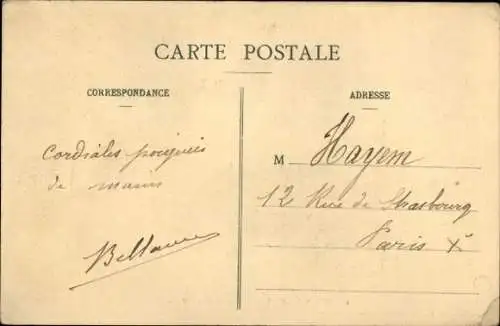 CARTE POSTALE
CORRESPONDANCE
Cordiales poignées
de mains
ADRESSE
M Hayem
12 Rue de Strasbourg
Paris X